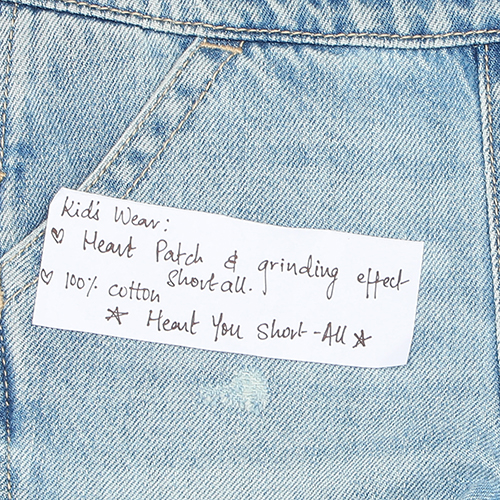 Kid's Wear:
♡ Heart Patch & grinding effect
Shortall.
♡ 100% cotton
☆ Heart You Short-All ☆